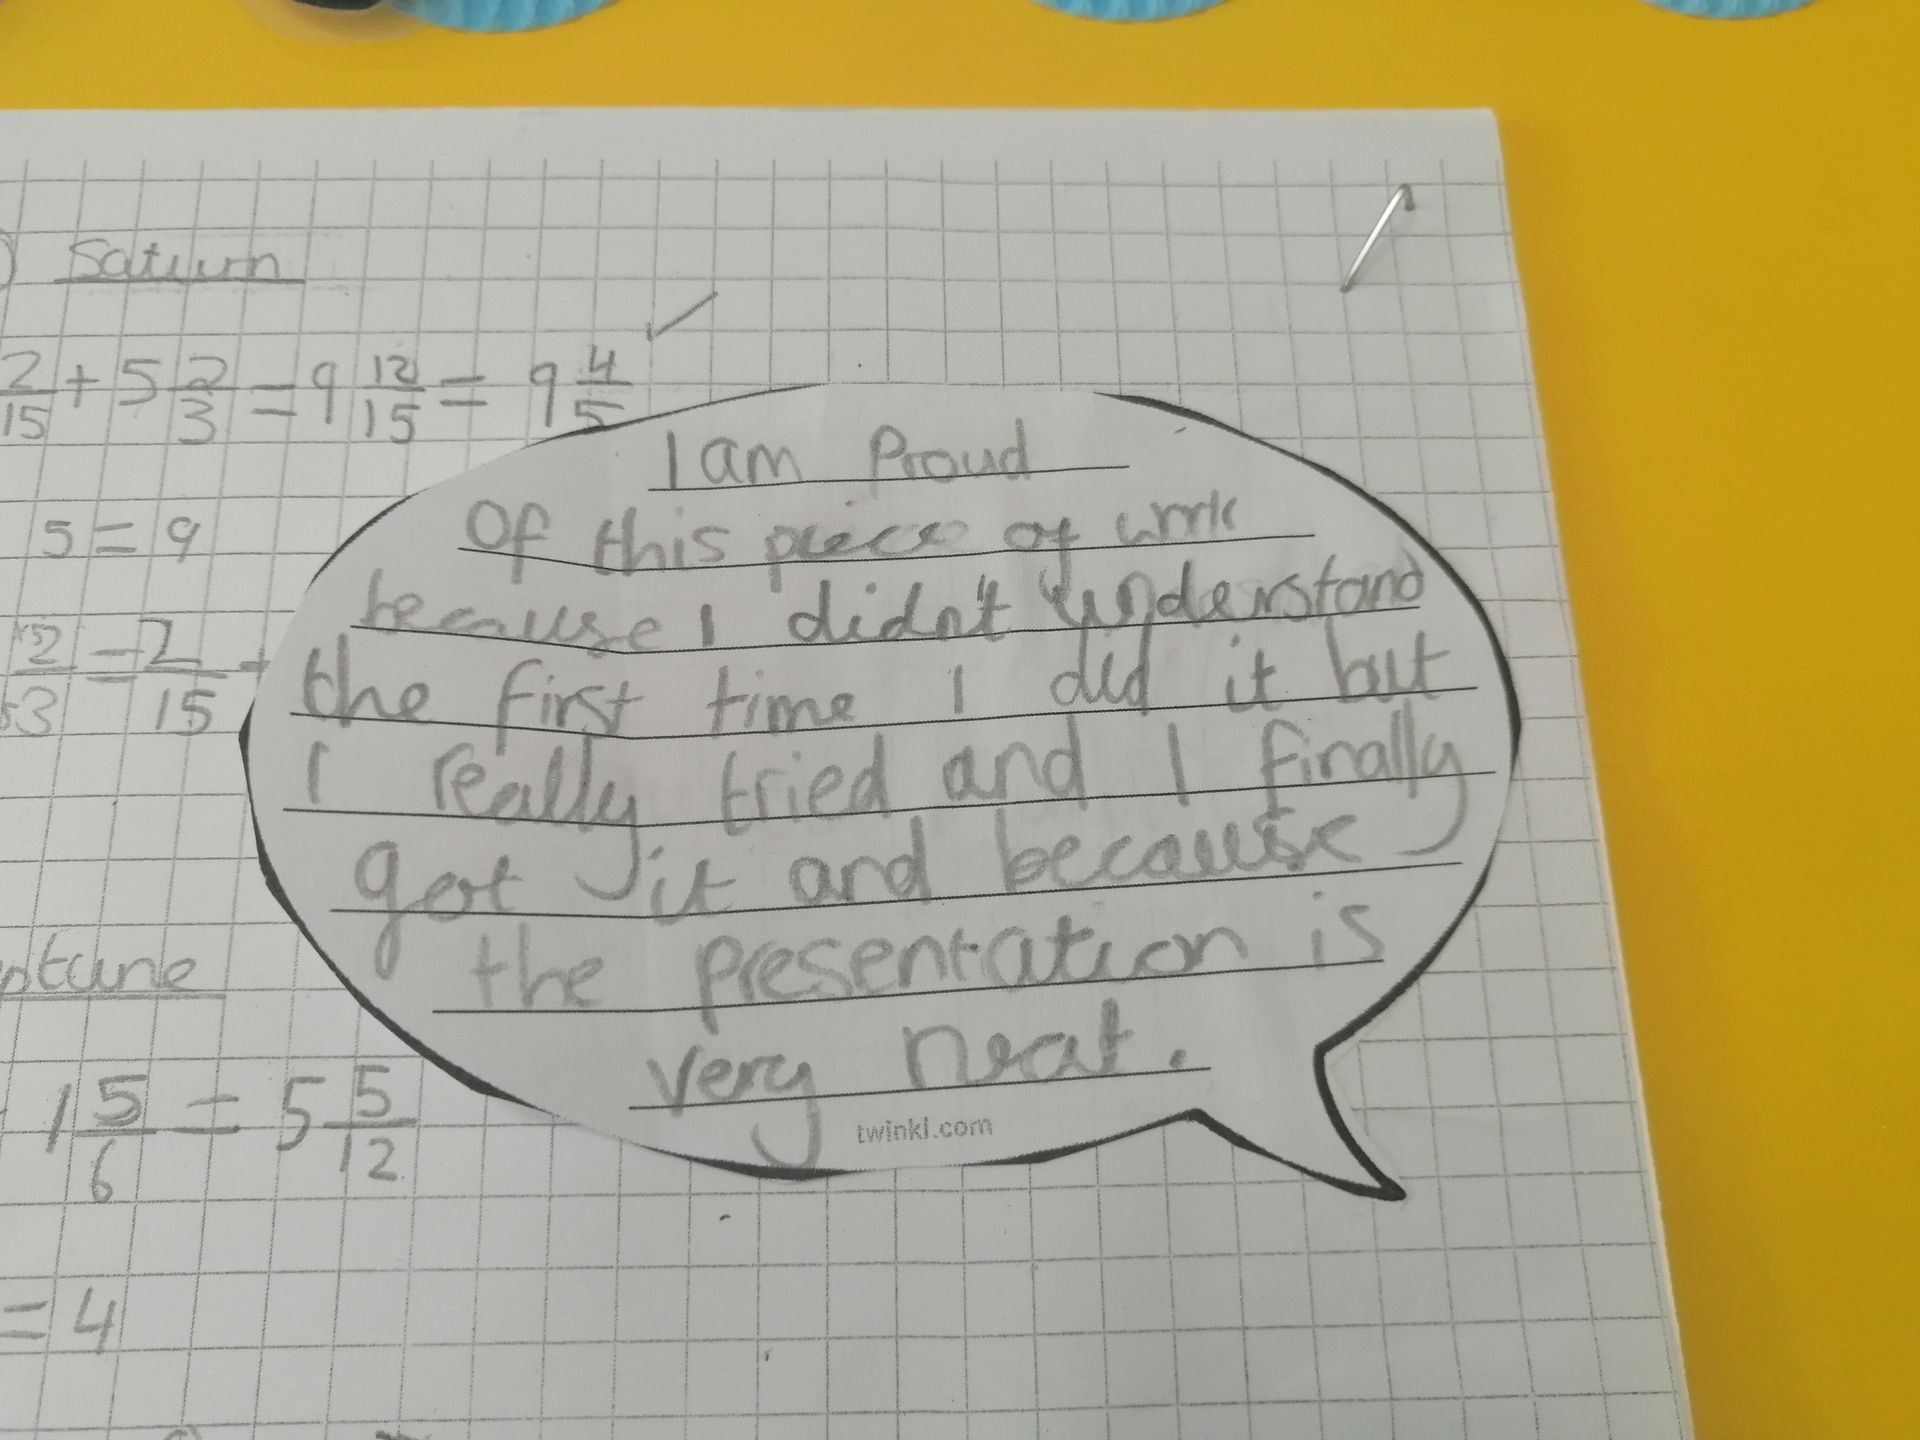 ) Saturn
2/15 + 5 2/3 = 9 12/15 = 9 4/5 ✓
5 = 9
×5 2/3 = 2/15
ptune
1 5/6 = 5 5/12
= 4
I am Proud
Of this piece of work
because I didn't understand
the first time I did it but
I really tried and I finally
got it and because
the presentation is
very neat.
twinkl.com